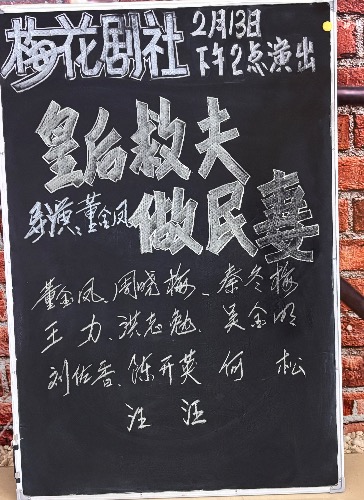 梅花剧社
2月13日
下午2点演出
皇后救夫
导演：董金凤
做民妻
董金凤、周晓梅、秦冬梅
王 力、洪志勉、吴金明
刘佐香、陈开英 何 松
汪 汪